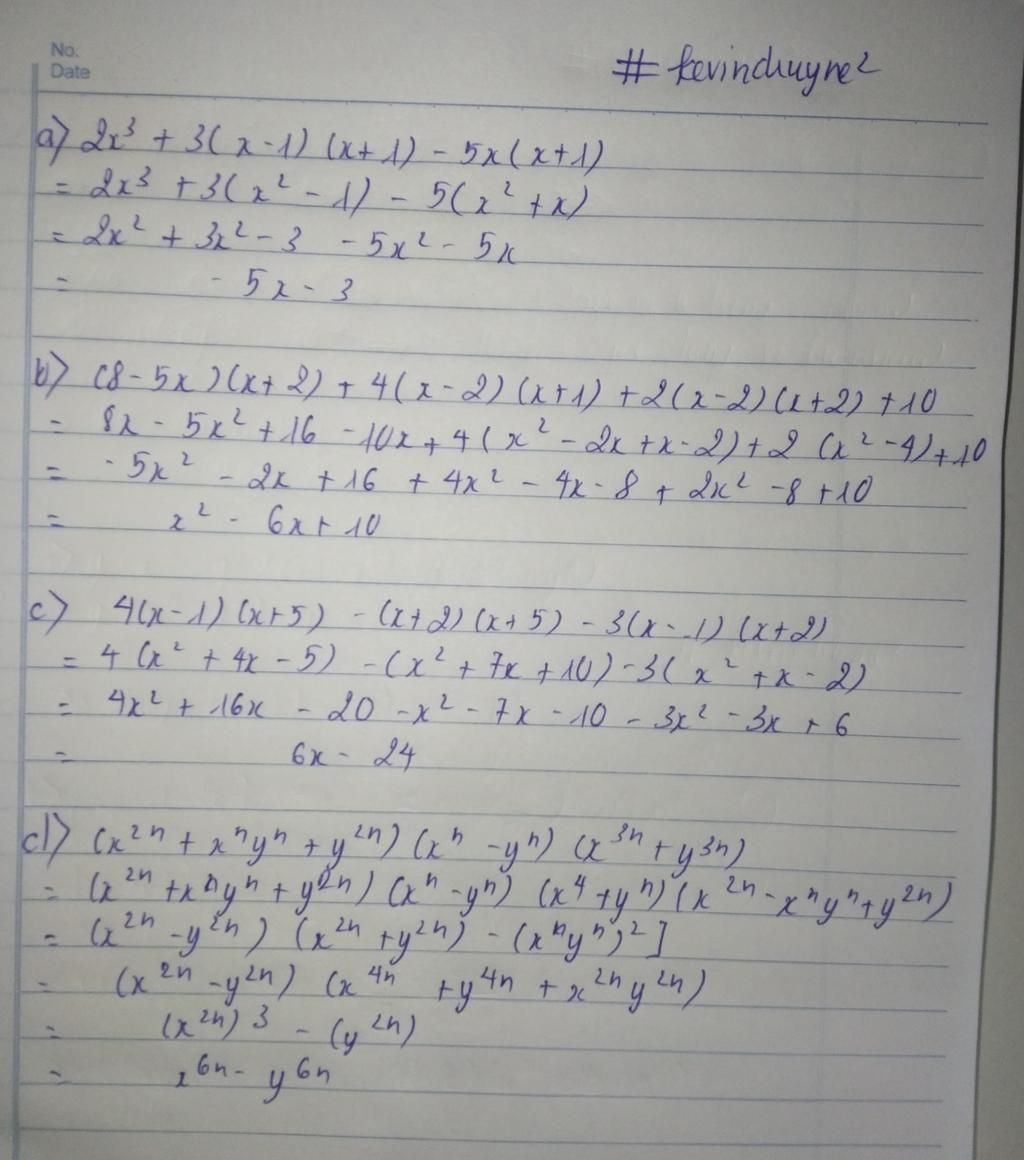 No.
Date
# kevinchuyne²
a) 2x³ + 3(x-1)(x+1) - 5x(x+1)
= 2x³ + 3(x² - 1) - 5(x² + x)
= 2x² + 3x² - 3 - 5x² - 5x
= - 5x - 3
b) (8 - 5x)(x + 2) + 4(x - 2)(x+1) + 2(x-2)(x+2) + 10
= 8x - 5x² + 16 - 10x + 4(x² - 2x + x - 2) + 2(x² - 4) + 10
= - 5x² - 2x + 16 + 4x² - 4x - 8 + 2x² - 8 + 10
= x² - 6x + 10
c) 4(x-1)(x+5) - (x+2)(x+5) - 3(x-1)(x+2)
= 4(x² + 4x - 5) - (x² + 7x + 10) - 3(x² + x - 2)
= 4x² + 16x - 20 - x² - 7x - 10 - 3x² - 3x + 6
= 6x - 24
d) (x²ⁿ + xⁿyⁿ + y²ⁿ)(xⁿ - yⁿ)(x³ⁿ + y³ⁿ)
= (x²ⁿ + xⁿyⁿ + y²ⁿ)(xⁿ - yⁿ)(x⁴ + yⁿ)(x²ⁿ - xⁿyⁿ + y²ⁿ)
= (x²ⁿ - y²ⁿ)(x²ⁿ + y²ⁿ) - (xⁿyⁿ)²]
= (x²ⁿ - y²ⁿ)(x⁴ⁿ + y⁴ⁿ + x²ⁿy²ⁿ)
= (x²ⁿ)³ - (y²ⁿ)
= x⁶ⁿ - y⁶ⁿ